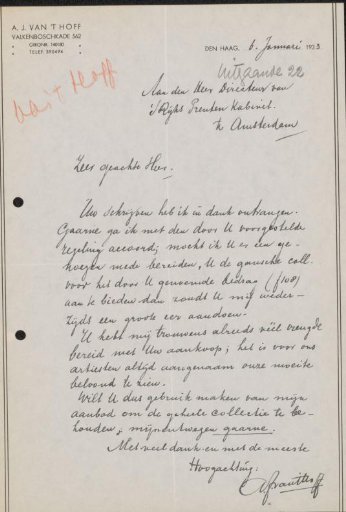 A. J. VAN 'T HOFF
VALKENBOSCHKADE 562
TELEF. 390494
DEN HAAG, 6 Januari 1933
van 't Hoff
Uitgaande 22
Aan den Heer Directeur van
's Rijks Prenten Kabinet.
te Amsterdam
Zeer geachte Heer.
Uw schrijven heb ik in dank ontvangen.
Gaarne ga ik met den door U voorgestelde
regeling accoord, mocht ik U er een ge-
noegen mede bereiden, U de gansche coll.
voor het door U genoemde bedrag (f 108)
aan te bieden dan zoudt U mij weder-
zijds een groote eer aandoen.
U hebt mij trouwens alreeds véél vreugde
bereid met Uw aankoop; het is voor ons
artiesten altijd aangenaam onze moeite
beloond te zien.
Wilt U dus gebruik maken van mijn
aanbod om de geheele collectie te be-
houden, mijnentwegen gaarne.
Met veel dank en met de meeste
Hoogachting:
AJvan't Hoff